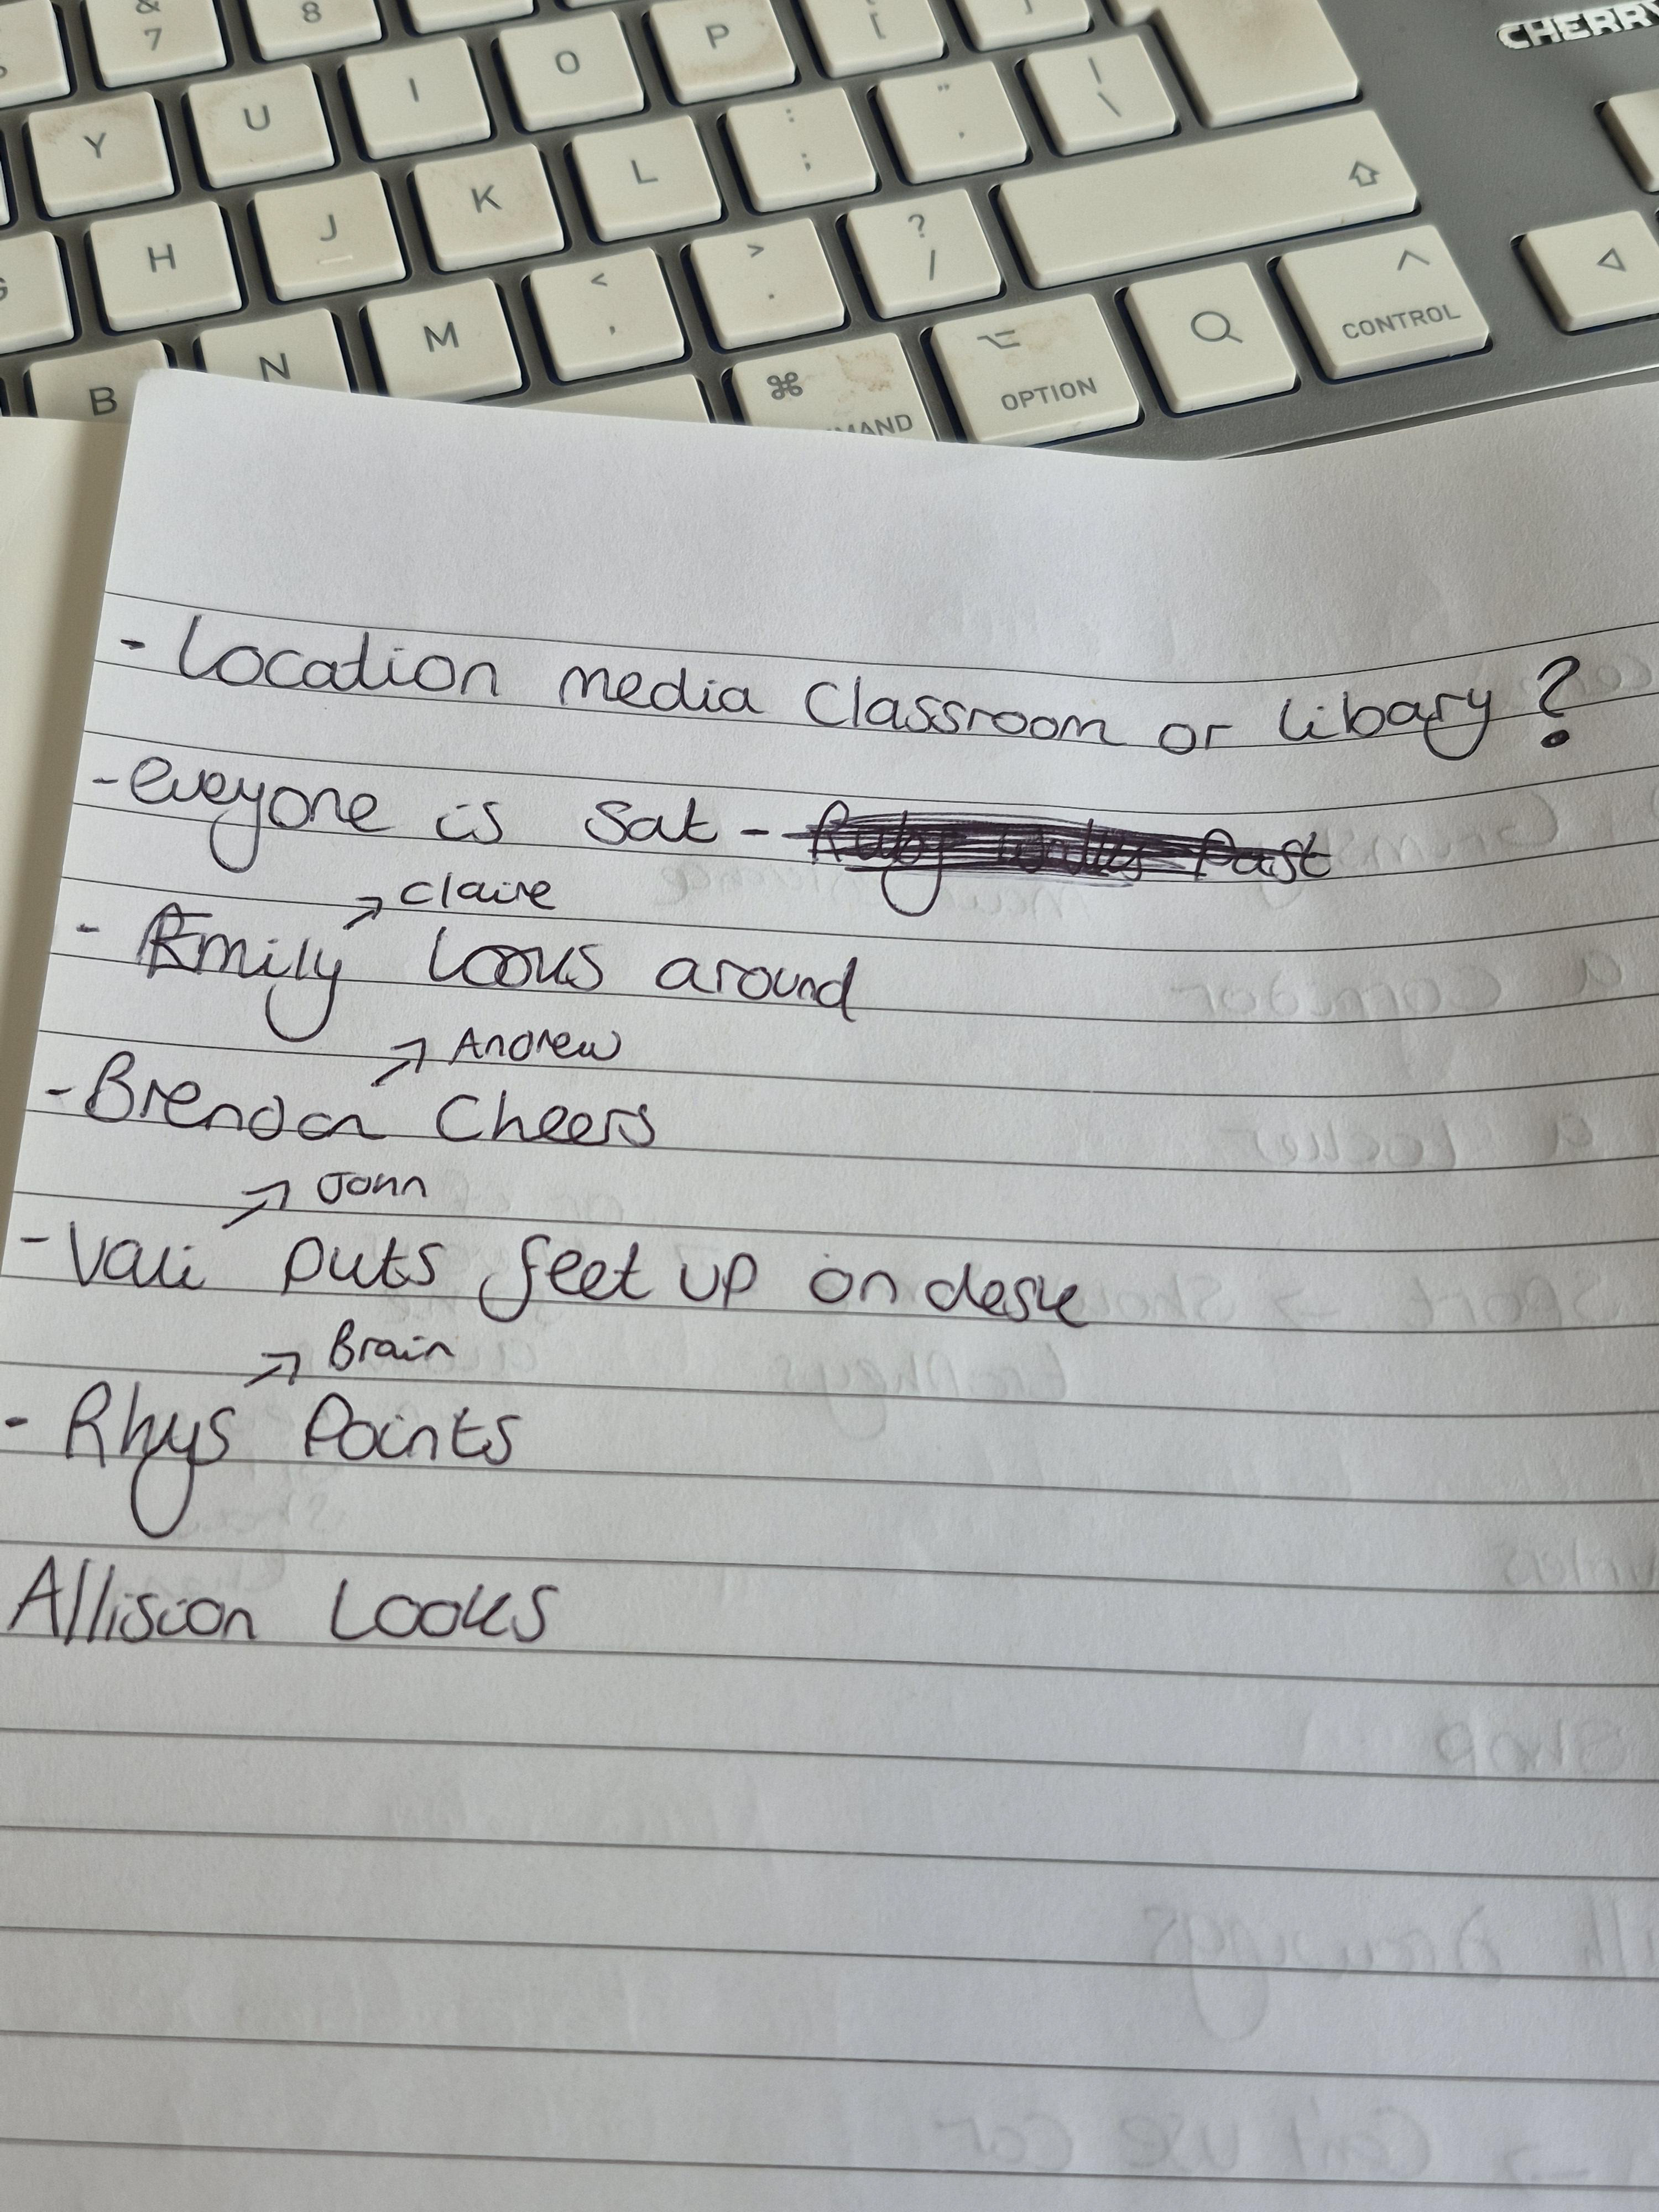 & 7
8
Y U I O P [ ]
CHERRY
H J K L : ; " ' | \
B N M < , > . ? /
⌘ ⌥ OPTION CONTROL
- Location media Classroom or libary ?
- eveyone is sat - Ruby walks Past
→ Claire
- Emily looks around
→ Andrew
- Brendan Cheers
→ John
- Vali puts feet up on desk
→ Brain
- Rhys Points
Allision Looks